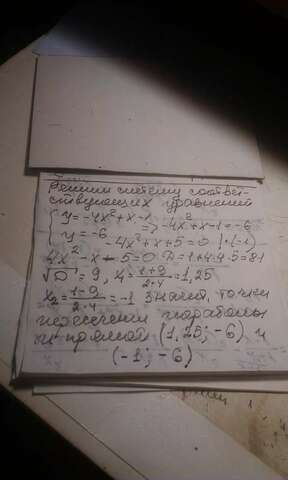 Решим систему соответ-
ствующих уравнений
{ y = -4x² + x - 1
y = -6 => -4x² + x - 1 = -6
-4x² + x + 5 = 0 | · (-1)
4x² - x - 5 = 0 D = 1 + 4·4·5 = 81
√D = 9, x₁ = (1+9)/(2·4) = 1,25
x₂ = (1-9)/(2·4) = -1 Значит, точки
пересечения параболы
и прямой (1,25; -6) и
(-1; -6)